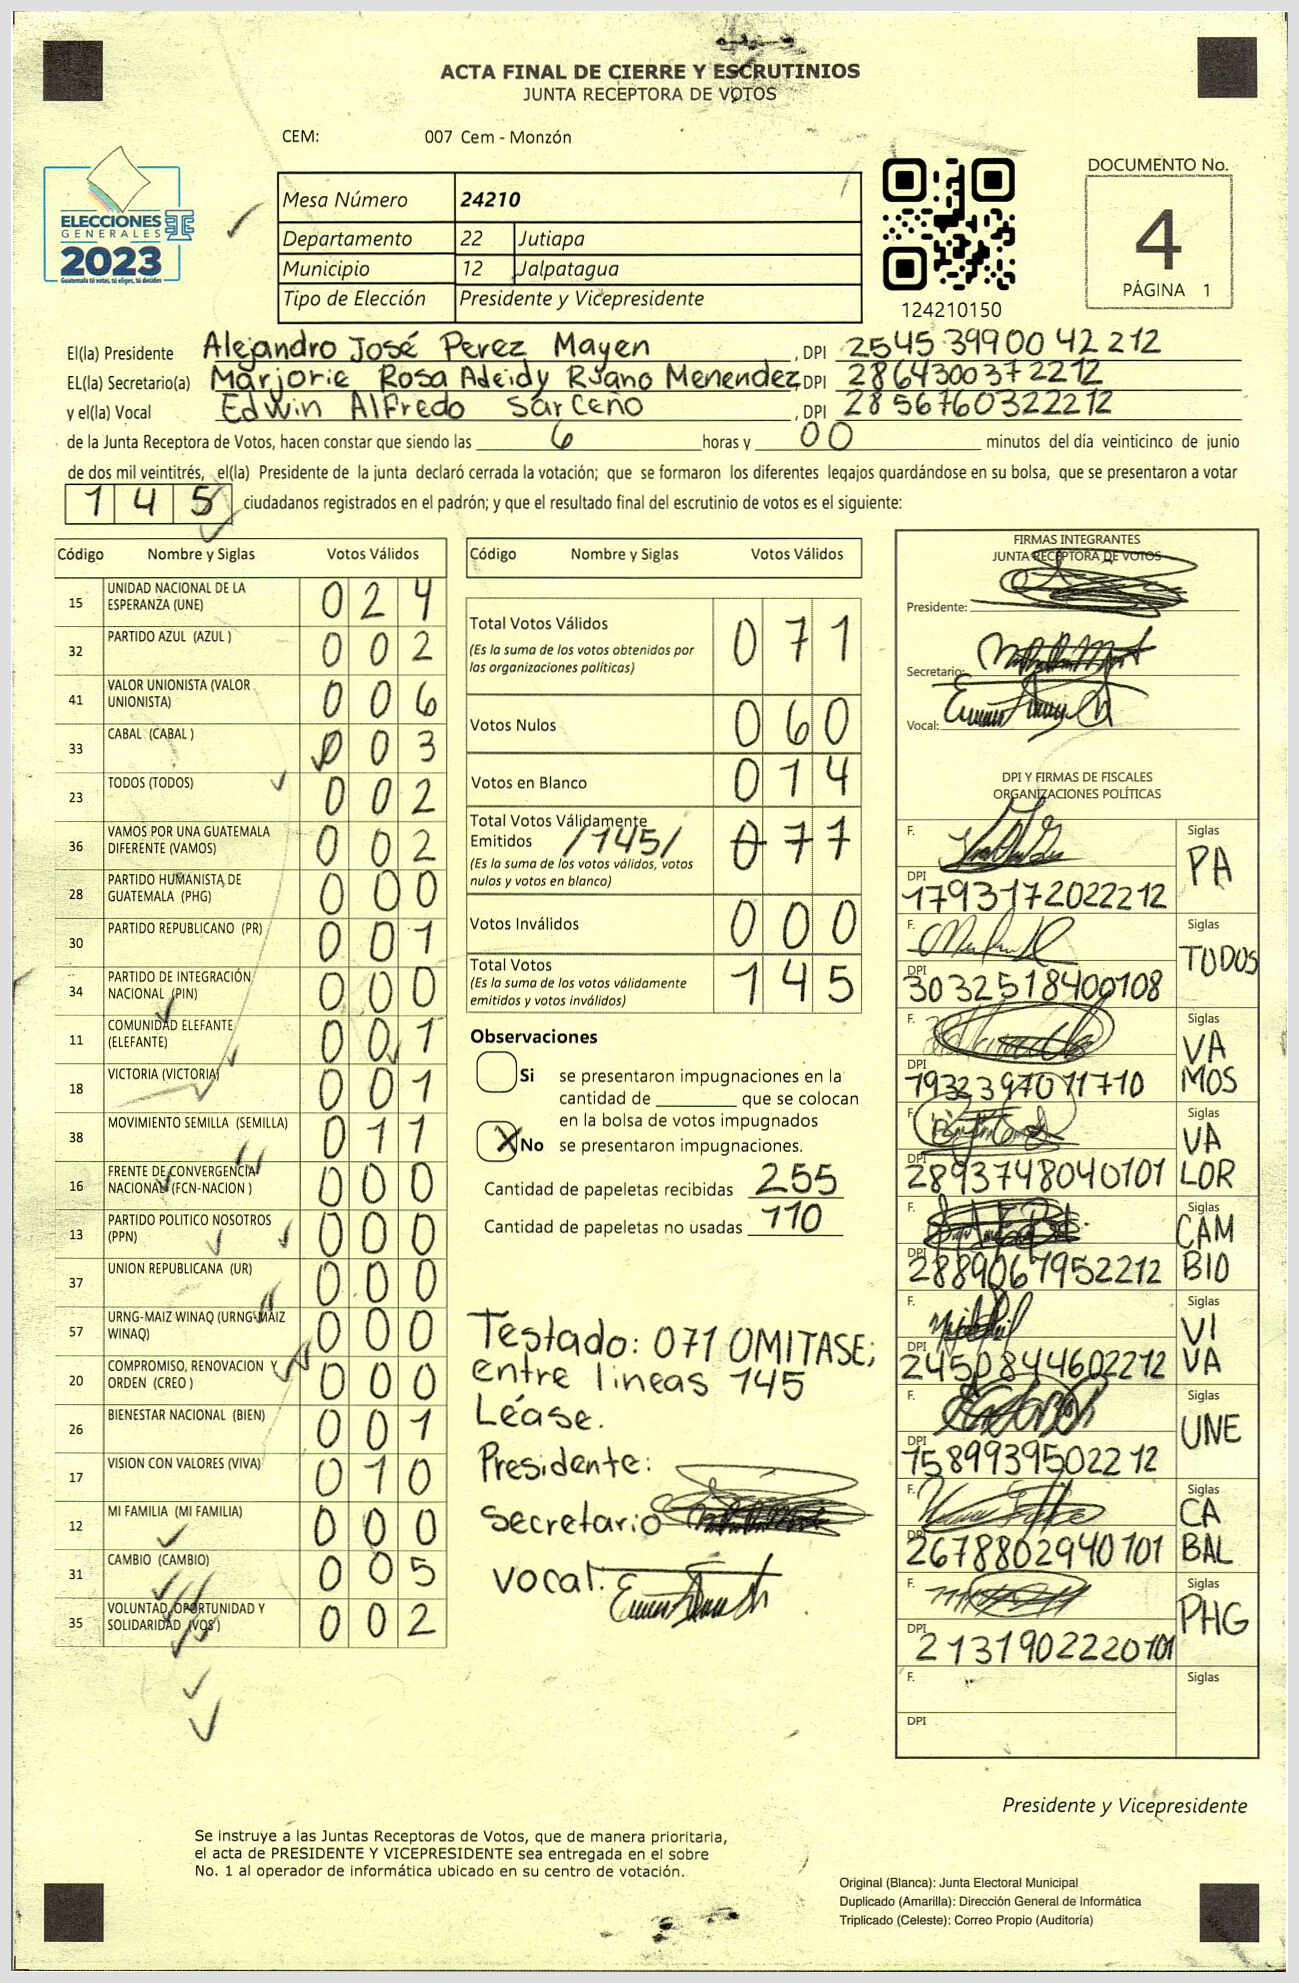 ACTA FINAL DE CIERRE Y ESCRUTINIOS
JUNTA RECEPTORA DE VOTOS
CEM: 007 Cem - Monzón
ELECCIONES
GENERALES
2023
Guatemala tú votas, tú eliges, tú decides
Mesa Número 24210
Departamento 22 Jutiapa
Municipio 12 Jalpatagua
Tipo de Elección Presidente y Vicepresidente
124210150
DOCUMENTO No.
4
PÁGINA 1
El(la) Presidente Alejandro José Perez Mayen , DPI 2545 39900 42 212
EL(la) Secretario(a) Marjorie Rosa Adeidy Ryano Menendez, DPI 2864300372212
y el(la) Vocal Edwin Alfredo Sarceño , DPI 2856760322212
de la Junta Receptora de Votos, hacen constar que siendo las 6 horas y 00 minutos del día veinticinco de junio
de dos mil veintitrés, el(la) Presidente de la junta declaró cerrada la votación; que se formaron los diferentes legajos quardándose en su bolsa, que se presentaron a votar
145 ciudadanos registrados en el padrón; y que el resultado final del escrutinio de votos es el siguiente:
Código Nombre y Siglas Votos Válidos
15 UNIDAD NACIONAL DE LA ESPERANZA (UNE) 024
32 PARTIDO AZUL (AZUL ) 002
41 VALOR UNIONISTA (VALOR UNIONISTA) 006
33 CABAL (CABAL ) 003
23 TODOS (TODOS) 002
36 VAMOS POR UNA GUATEMALA DIFERENTE (VAMOS) 002
28 PARTIDO HUMANISTA DE GUATEMALA (PHG) 000
30 PARTIDO REPUBLICANO (PR) 001
34 PARTIDO DE INTEGRACIÓN NACIONAL (PIN) 000
11 COMUNIDAD ELEFANTE (ELEFANTE) 001
18 VICTORIA (VICTORIA) 001
38 MOVIMIENTO SEMILLA (SEMILLA) 011
16 FRENTE DE CONVERGENCIA NACIONAL (FCN-NACION ) 000
13 PARTIDO POLITICO NOSOTROS (PPN) 000
37 UNION REPUBLICANA (UR) 000
57 URNG-MAIZ WINAQ (URNG-MAIZ WINAQ) 000
20 COMPROMISO, RENOVACION Y ORDEN (CREO ) 000
26 BIENESTAR NACIONAL (BIEN) 001
17 VISION CON VALORES (VIVA) 010
12 MI FAMILIA (MI FAMILIA) 000
31 CAMBIO (CAMBIO) 005
35 VOLUNTAD, OPORTUNIDAD Y SOLIDARIDAD (VOS ) 002
Código Nombre y Siglas Votos Válidos
Total Votos Válidos 071
(Es la suma de los votos obtenidos por
las organizaciones políticas)
Votos Nulos 060
Votos en Blanco 014
Total Votos Válidamente
Emitidos /145/ 077
(Es la suma de los votos válidos, votos
nulos y votos en blanco)
Votos Inválidos 000
Total Votos 145
(Es la suma de los votos válidamente
emitidos y votos inválidos)
Observaciones
Si se presentaron impugnaciones en la
cantidad de ________ que se colocan
en la bolsa de votos impugnados
X No se presentaron impugnaciones.
Cantidad de papeletas recibidas 255
Cantidad de papeletas no usadas 110
Testado: 071 OMITASE;
entre lineas 145
Léase.
Presidente:
Secretario
vocal.
FIRMAS INTEGRANTES
JUNTA RECEPTORA DE VOTOS
Presidente:
Secretario:
Vocal:
DPI Y FIRMAS DE FISCALES
ORGANIZACIONES POLÍTICAS
F. Siglas PA
DPI 1793172022212
F. Siglas TODOS
DPI 3032518400108
F. Siglas VAMOS
DPI 1932397071710
F. Siglas VALOR
DPI 2893748040101
F. Siglas CAMBIO
DPI 2889067952212
F. Siglas VIVA
DPI 2450844602212
F. Siglas UNE
DPI 1589939502212
F. Siglas CABAL
DPI 2678802940101
F. Siglas PHG
DPI 2131902220101
F. Siglas
DPI
Presidente y Vicepresidente
Se instruye a las Juntas Receptoras de Votos, que de manera prioritaria,
el acta de PRESIDENTE Y VICEPRESIDENTE sea entregada en el sobre
No. 1 al operador de informática ubicado en su centro de votación.
Original (Blanca): Junta Electoral Municipal
Duplicado (Amarilla): Dirección General de Informática
Triplicado (Celeste): Correo Propio (Auditoría)